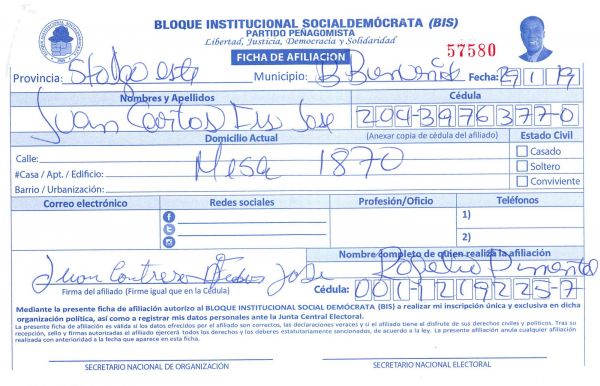 BLOQUE INSTITUCIONAL SOCIALDEMÓCRATA (BIS)
PARTIDO PEÑAGOMISTA
Libertad, Justicia, Democracia y Solidaridad
FICHA DE AFILIACIÓN
57580
Provincia: Stdgo este Municipio: B Bienvenida Fecha:
Nombres y Apellidos Cédula
Juan Carlos Jose 204-3976377-0
Domicilio Actual (Anexar copia de cédula del afiliado) Estado Civil
Calle: Casado
Mesa 1870
#Casa / Apt. / Edificio: Soltero
Barrio / Urbanización: Conviviente
Correo electrónico Redes sociales Profesión/Oficio Teléfonos
1)
2)
Nombre completo de quien realiza la afiliación
Juan Jose Pimentel
Firma del afiliado (Firme igual que en la Cédula) Cédula: 001-1219225-7
Mediante la presente ficha de afiliación autorizo al BLOQUE INSTITUCIONAL SOCIAL DEMÓCRATA (BIS) a realizar mi inscripción única y exclusiva en dicha
organización política, así como a registrar mis datos personales ante la Junta Central Electoral.
La presente ficha de afiliación es válida si los datos ofrecidos por el afiliado son correctos, las declaraciones veraces y si el afiliado tiene el disfrute de sus derechos civiles y políticos. Tras su
recepción, sello y firmas autorizadas el afiliado ejercerá todos los derechos y los deberes estatutariamente sancionados, de acuerdo a la ley. La presente afiliación anula cualquier afiliación
realizada con anterioridad a la fecha que aparece en esta ficha.
SECRETARIO NACIONAL DE ORGANIZACIÓN SECRETARIO NACIONAL ELECTORAL